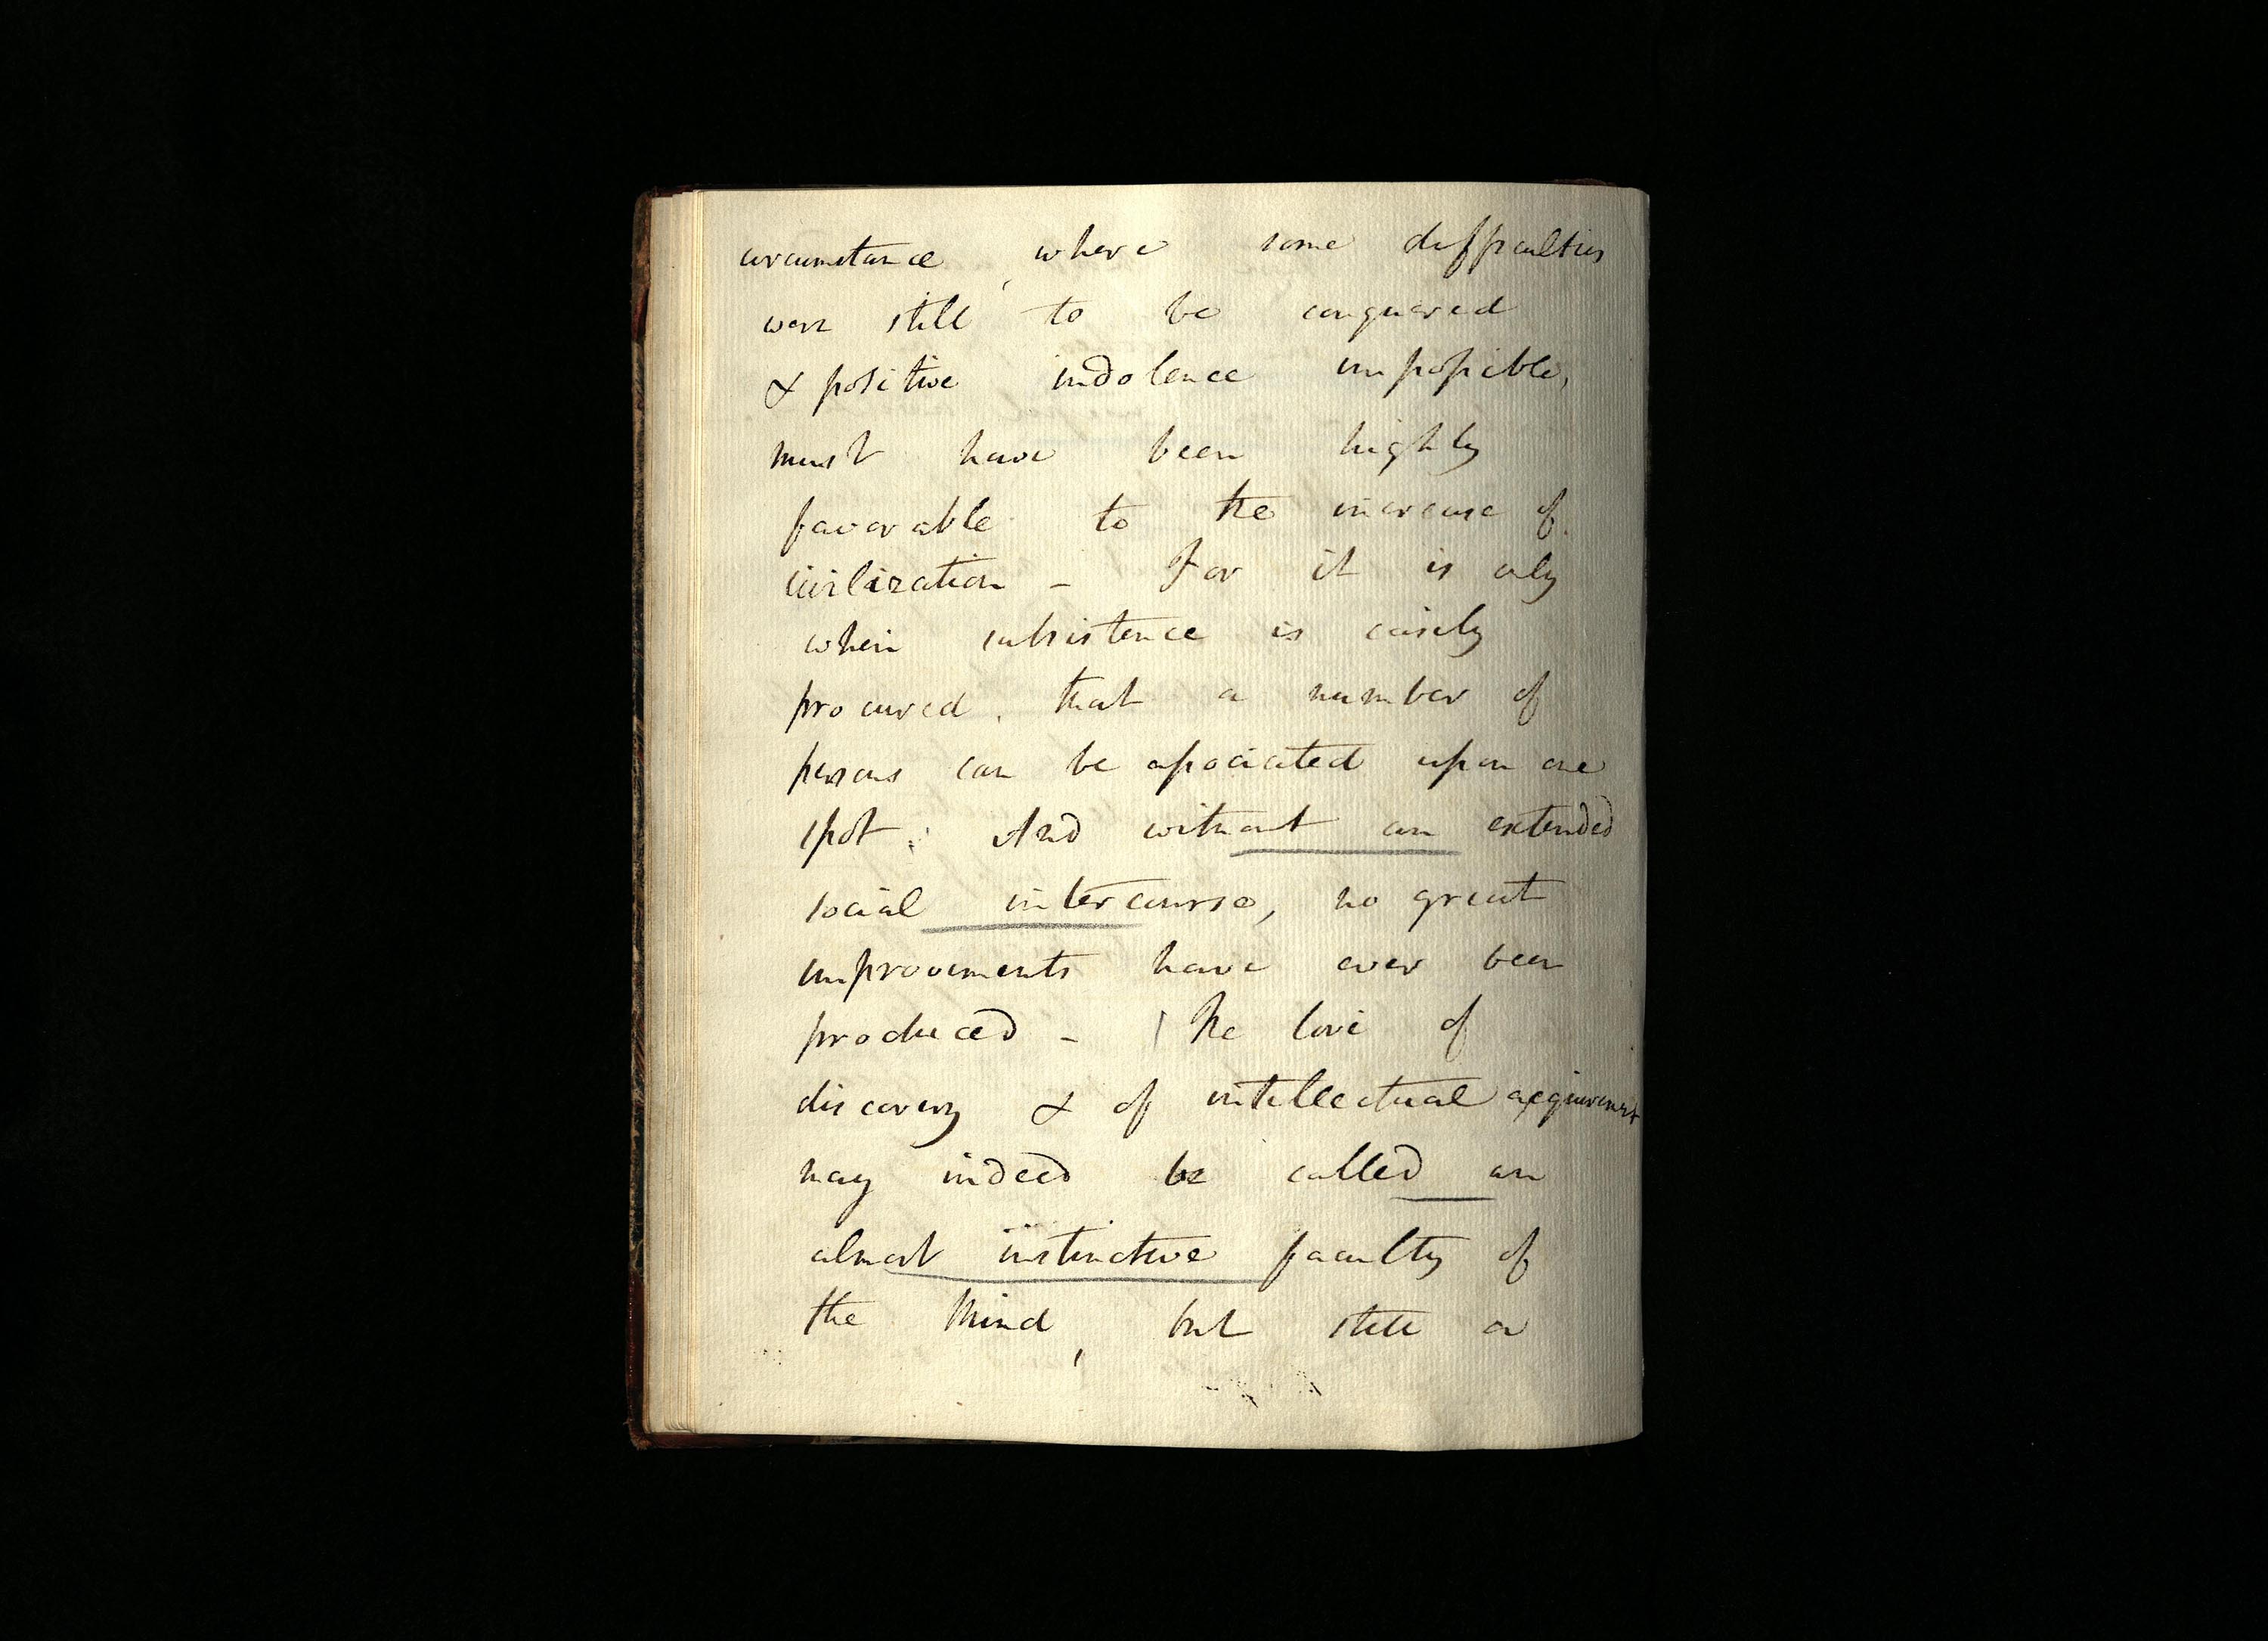 circumstance, where some difficulties
were still to be conquered
& positive indolence impossible,
must have been highly
favorable to the increase of
civilization – For it is only
when subsistence is easily
procured, that a number of
persons can be associated upon one
spot: And without an extended
social intercourse, no great
improvements have ever been
produced – The love of
discovery & of intellectual acquirement
may indeed be called an
almost instinctive faculty of
the Mind, but still a